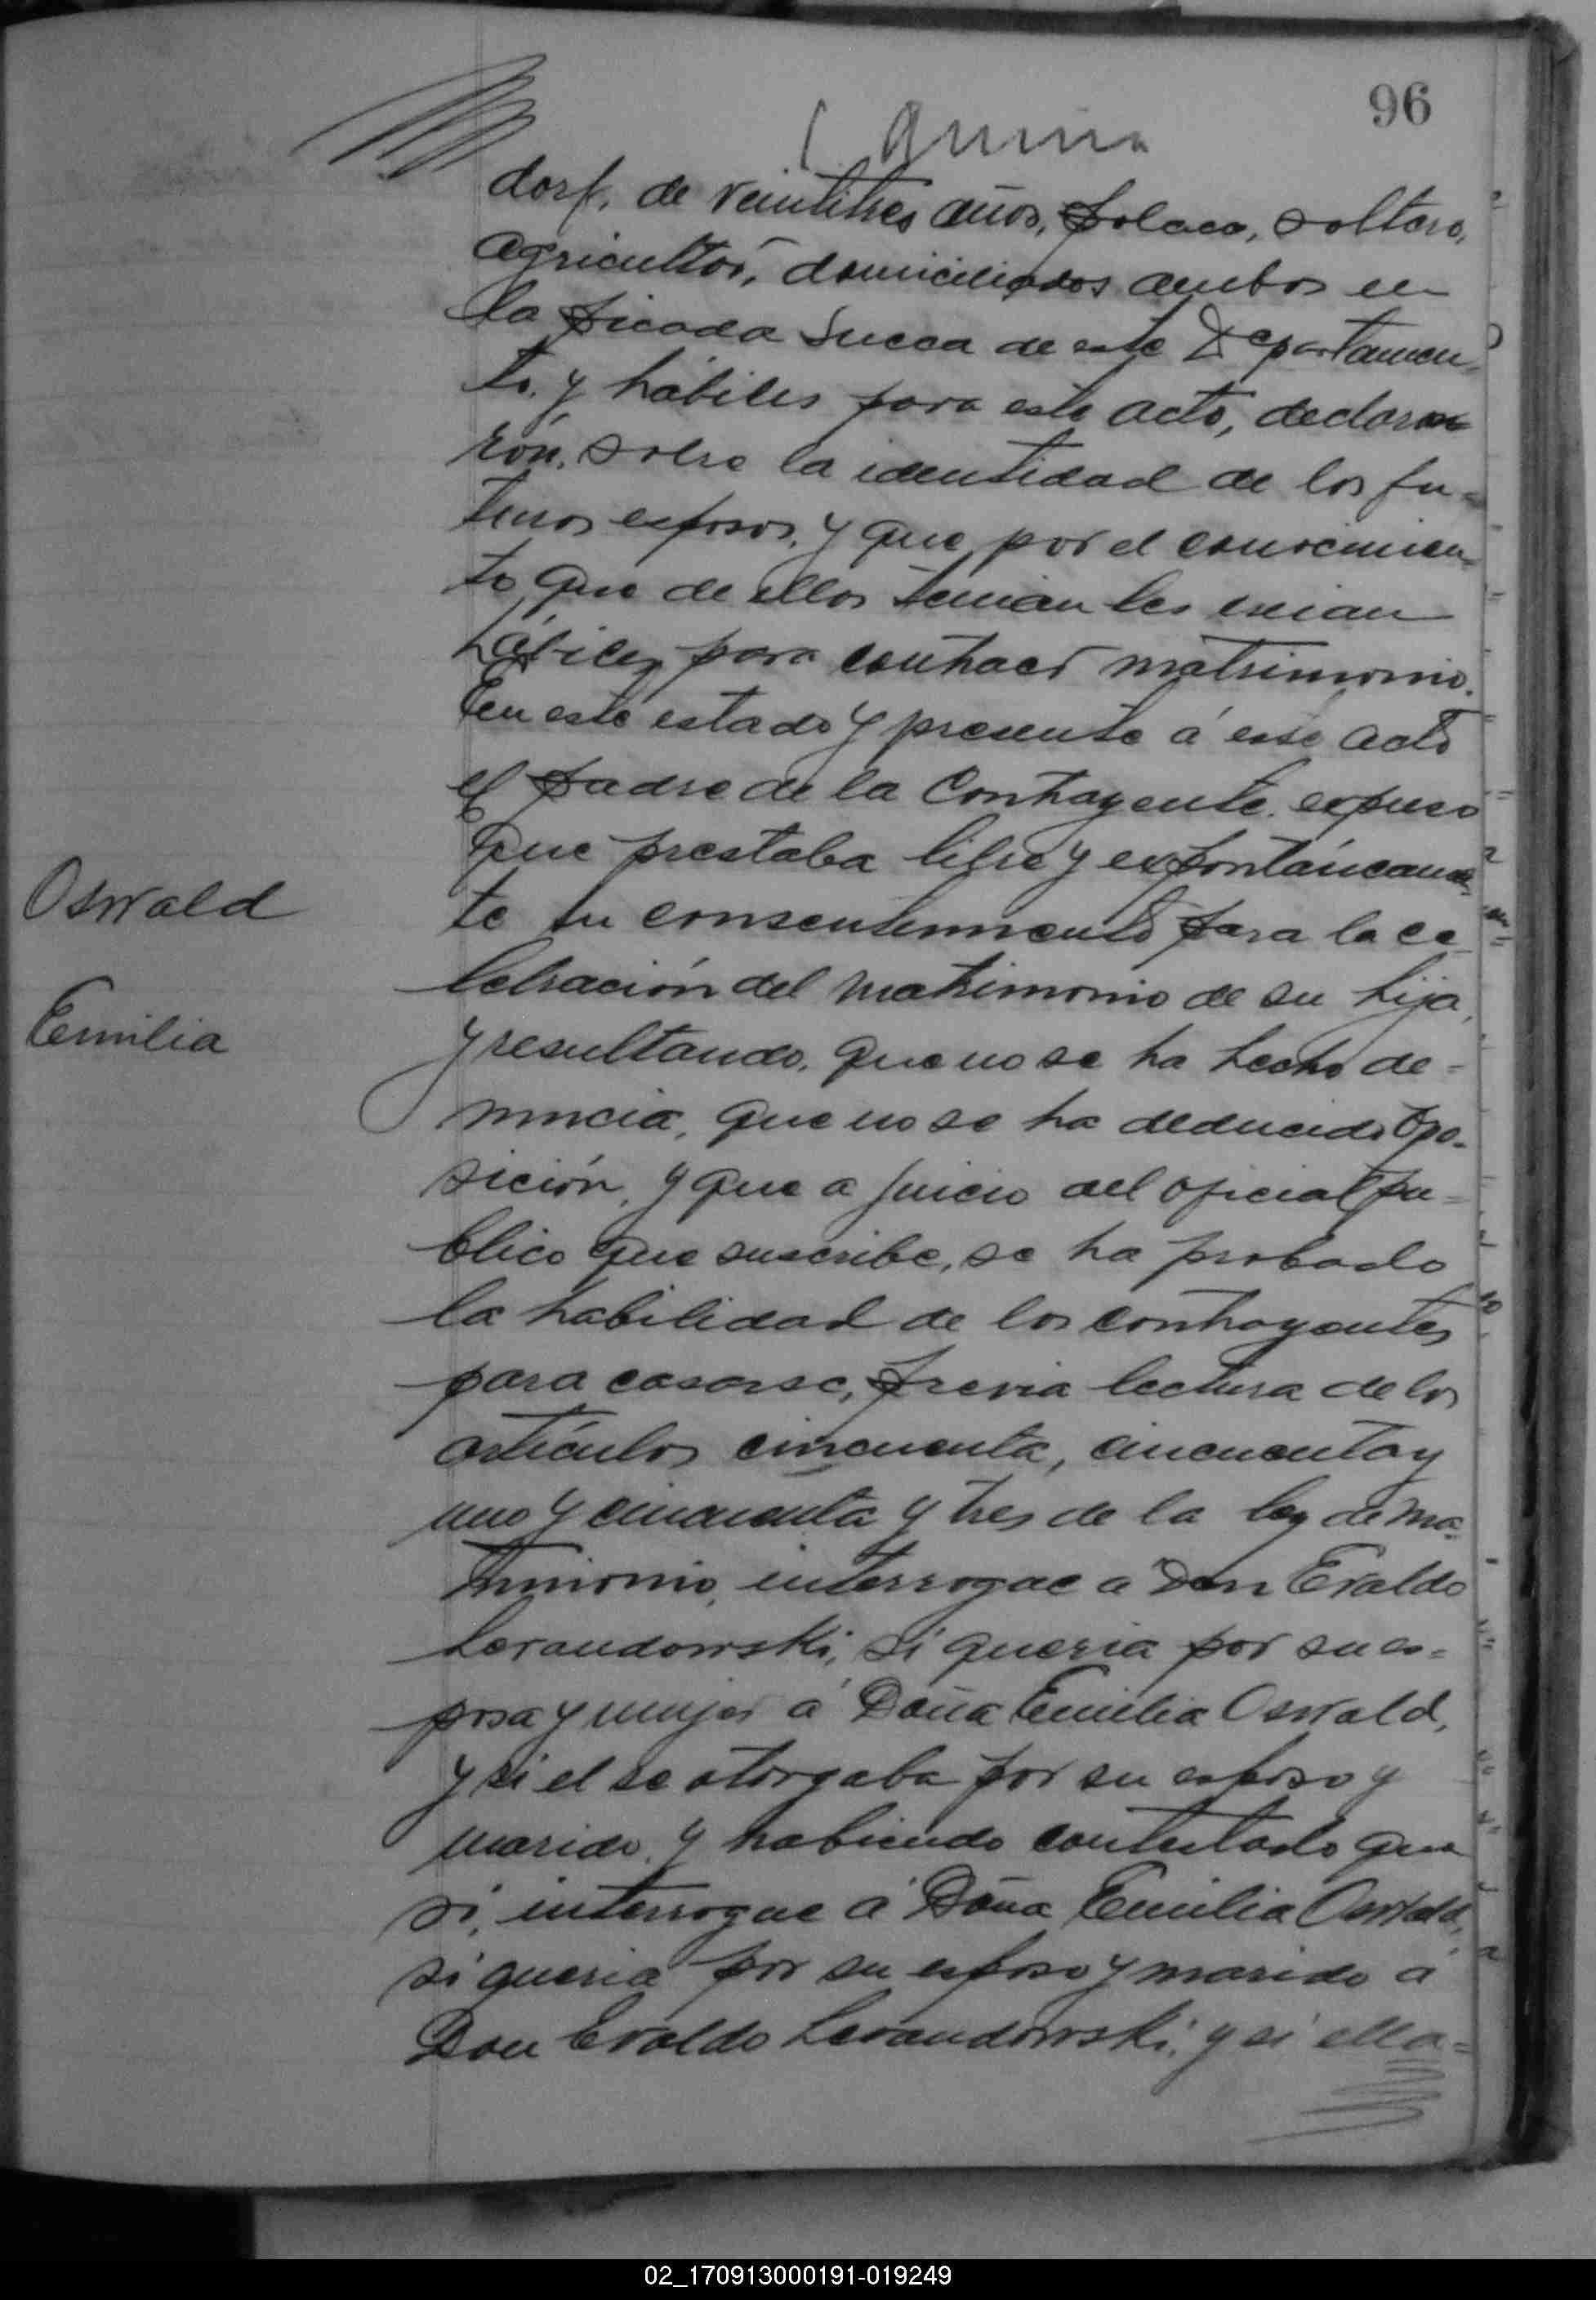 96
dorf, de veintitres años, polaco, soltero,
agricultor, domiciliados ambos en
la picada Sueca de este Departamen-
to, y hábiles para este acto, declara-
rón, sobre la identidad de los fu-
turos esposos, y que por el conocimien-
to que de ellos tenian les creian
hábiles para contraer matrimonio.
En este estado y presente á este acto
el padre de la Contrayente. expuso
que prestaba libre y expontáneamen-
te su consentimiento para la ce-
lebración del matrimonio de su hija,
Oswald
Emilia
y resultando, que no se ha hecho de-
nuncia, que no se ha deducido opo-
sición, y que a juicio del oficial pu-
blico que suscribe, se ha probado
la habilidad de los contrayentes
para casarse, previa lectura de los
artículos cincuenta, cincuenta y
uno y cincuenta y tres de la ley de ma-
trimonio, interrogue a Don Evaldo
Levandowski, si queria por su es-
posa y mujer á Doña Emilia Oswald,
y si el se otorgaba por su esposo y
marido, y habiendo contestado que
si, interrogue á Doña Emilia Oswald,
si queria por su esposo y marido a
Don Evaldo Levandowski, y si ella-
02_170913000191-019249